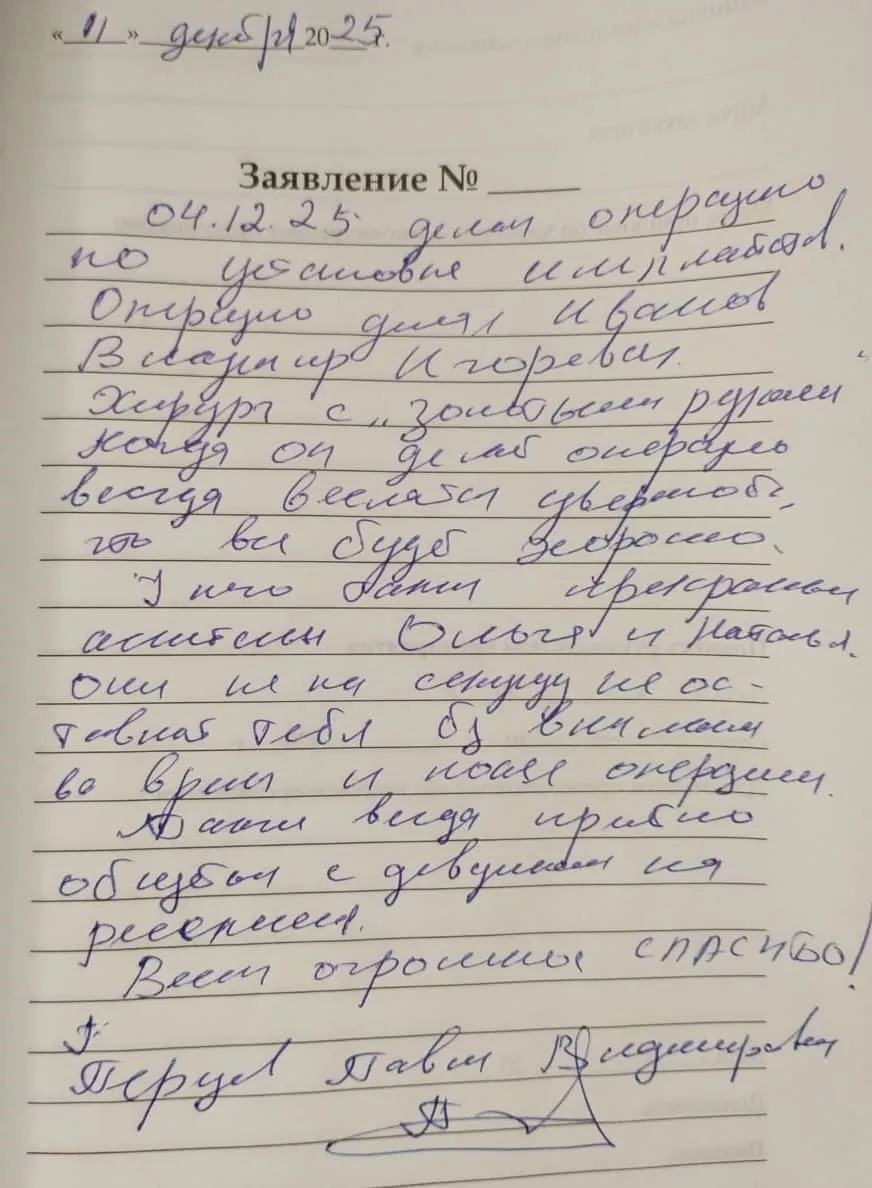 «11» декабря 2025 г.
Заявление №
04.12.25 делал операцию
по установке имплантатов.
Операцию делал Иванов
Владимир Игоревич.
Хирург с „золотыми руками
когда он делает операцию
всегда вселяется уверенность,
что все будет хорошо.
У него также прекрасные
ассистенты Ольга и Наталья.
Они не на секунду не ос-
тавляют тебя без внимания
во время и после операции.
Также всегда приятно
общаться с девушками на
ресепшен.
Всем огромное СПАСИБО!
Павел Владимирович